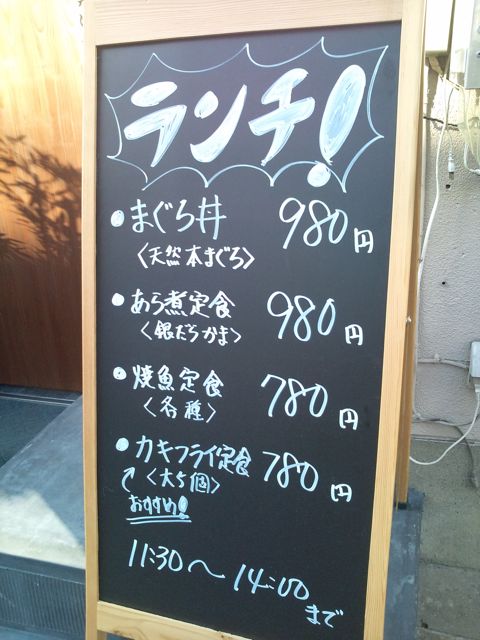 ランチ!
●まぐろ丼 980円
〈天然本まぐろ〉
●あら煮定食 980円
〈銀だらかま〉
●焼魚定食 780円
〈各種〉
●カキフライ定食 780円
〈大5個〉
おすすめ!
11:30〜14:00
まで